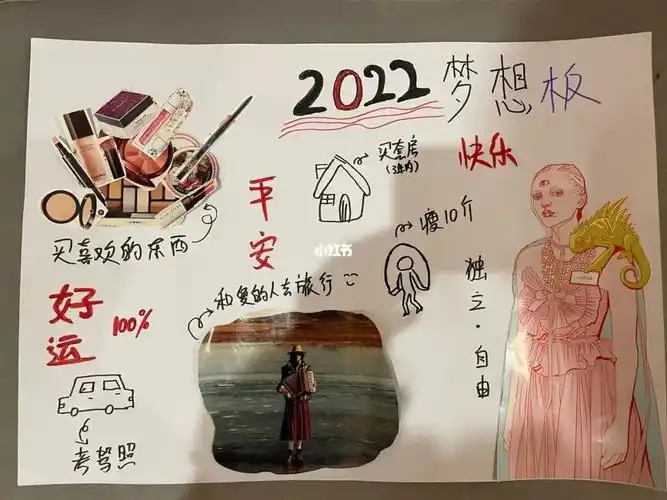 2022 梦想板
买喜欢的东西
平安
买套房
(3年内)
快乐
瘦10斤
小红书
和爱的人去旅行
好运
100%
独立·自由
考驾照